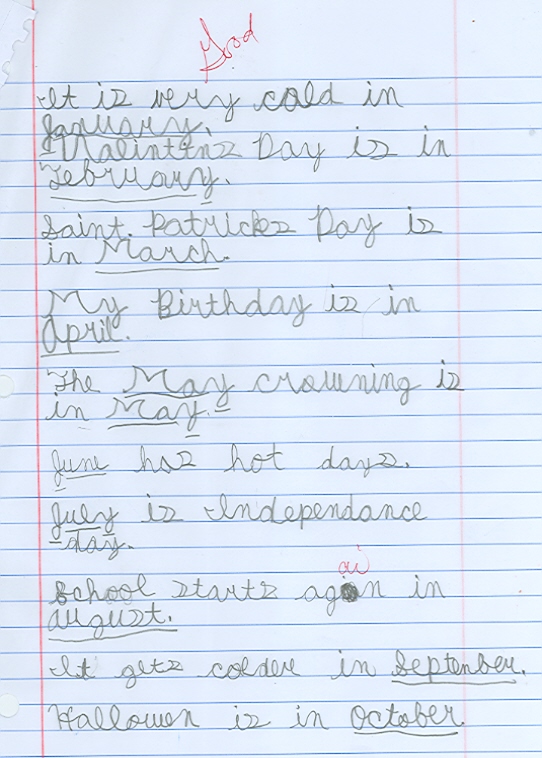 Good
It is very cold in
January.
Valintins Day is in
February.
Saint. Patricks Day is
in March.
My Birthday is in
April.
The May crowning is
in May.
June has hot days.
July is Independance
day.
ai
School starts agin in
august.
It gets colder in September.
Hallowen is in October.